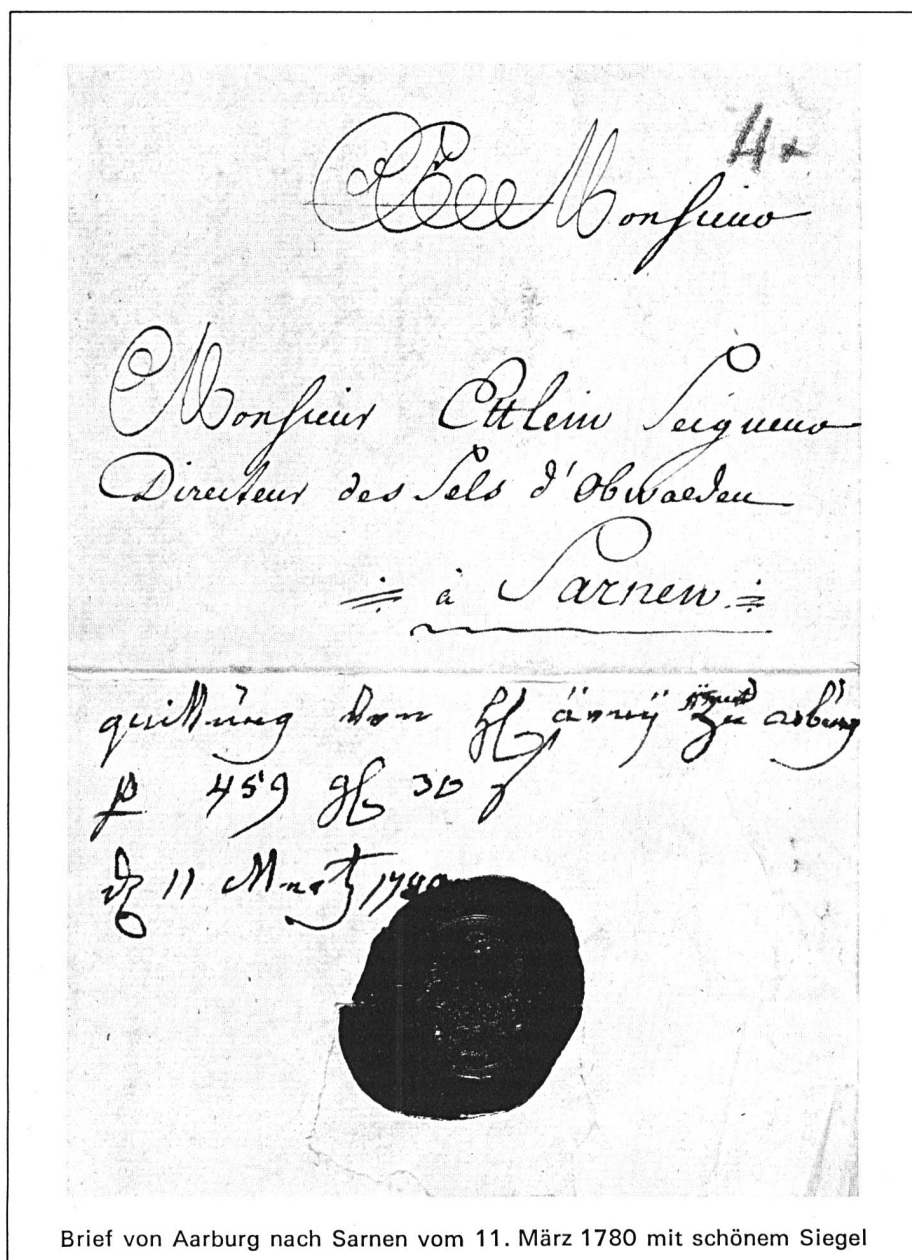 4
Monsieur
Monsieur Ettlein Seigneur
Directeur des Sels d'Obwalden
à Sarnen
quittung von zu arburg
p 459 gl 30
11 Mertz 1780
Brief von Aarburg nach Sarnen vom 11. März 1780 mit schönem Siegel